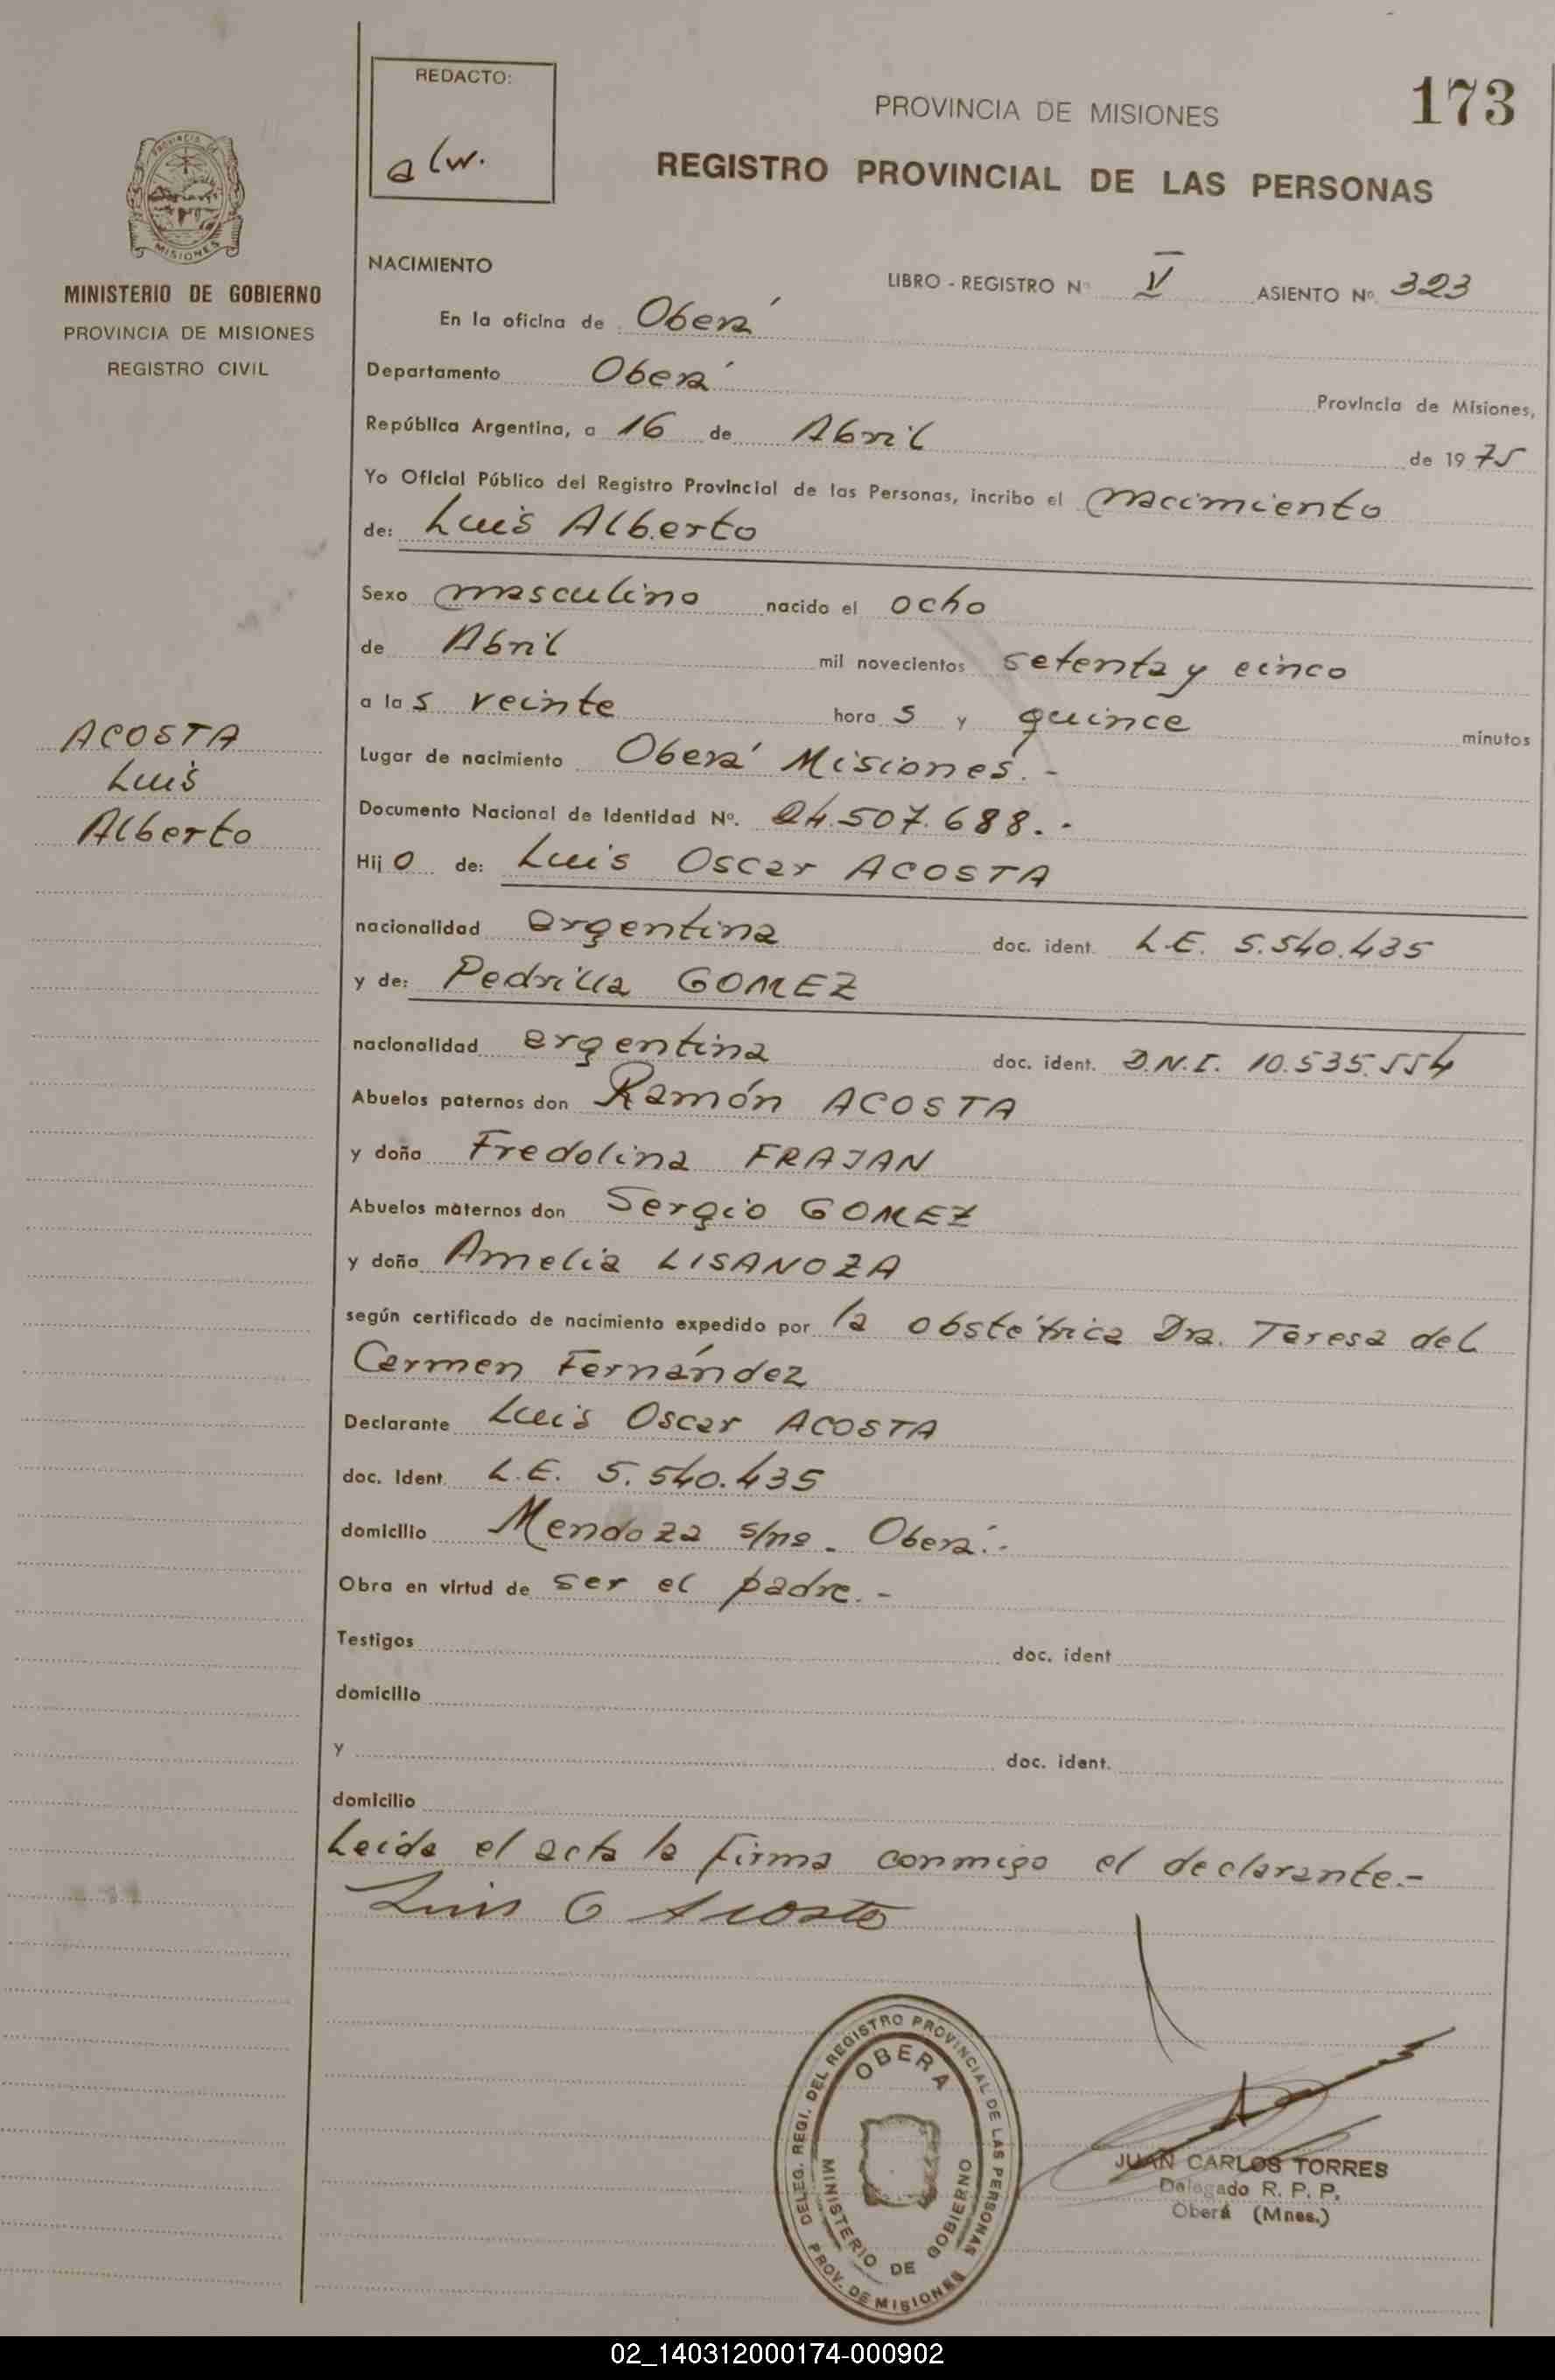 REDACTO:
alw.
PROVINCIA DE MISIONES
173
REGISTRO PROVINCIAL DE LAS PERSONAS
PROVINCIA DE
MISIONES
MINISTERIO DE GOBIERNO
PROVINCIA DE MISIONES
REGISTRO CIVIL
ACOSTA
Luis
Alberto
NACIMIENTO
LIBRO - REGISTRO Nº V ASIENTO Nº 323
En la oficina de Oberá
Departamento Oberá Provincia de Misiones,
República Argentina, a 16 de Abril de 1975
Yo Oficial Público del Registro Provincial de las Personas, incribo el nacimiento
de: Luis Alberto
Sexo masculino nacido el ocho
de Abril mil novecientos setenta y cinco
a las veinte horas y quince minutos
Lugar de nacimiento Oberá Misiones.-
Documento Nacional de Identidad Nº. 24.507.688.-
Hijo de: Luis Oscar ACOSTA
nacionalidad argentina doc. ident. L.E. 5.540.435
y de: Pedrilla GOMEZ
nacionalidad argentina doc. ident. D.N.I. 10.535.554
Abuelos paternos don Ramón ACOSTA
y doña Fredolina FRAJAN
Abuelos maternos don Sergio GOMEZ
y doña Amelia LISANOZA
según certificado de nacimiento expedido por la obstétrica Dra. Teresa del
Carmen Fernández
Declarante Luis Oscar ACOSTA
doc. Ident. L.E. 5.540.435
domicilio Mendoza s/nº. Oberá.-
Obra en virtud de ser el padre.-
Testigos doc. ident
domicilio
y doc. ident.
domicilio
Leida el acta la firma conmigo el declarante.-
Luis O Acosta
DELEG. REGI. DEL REGISTRO PROVINCIAL DE LAS PERSONAS
OBERA
MINISTERIO DE GOBIERNO
PROV. DE MISIONES
JUAN CARLOS TORRES
Delegado R. P. P.
Oberá (Mnes.)
02_140312000174-000902